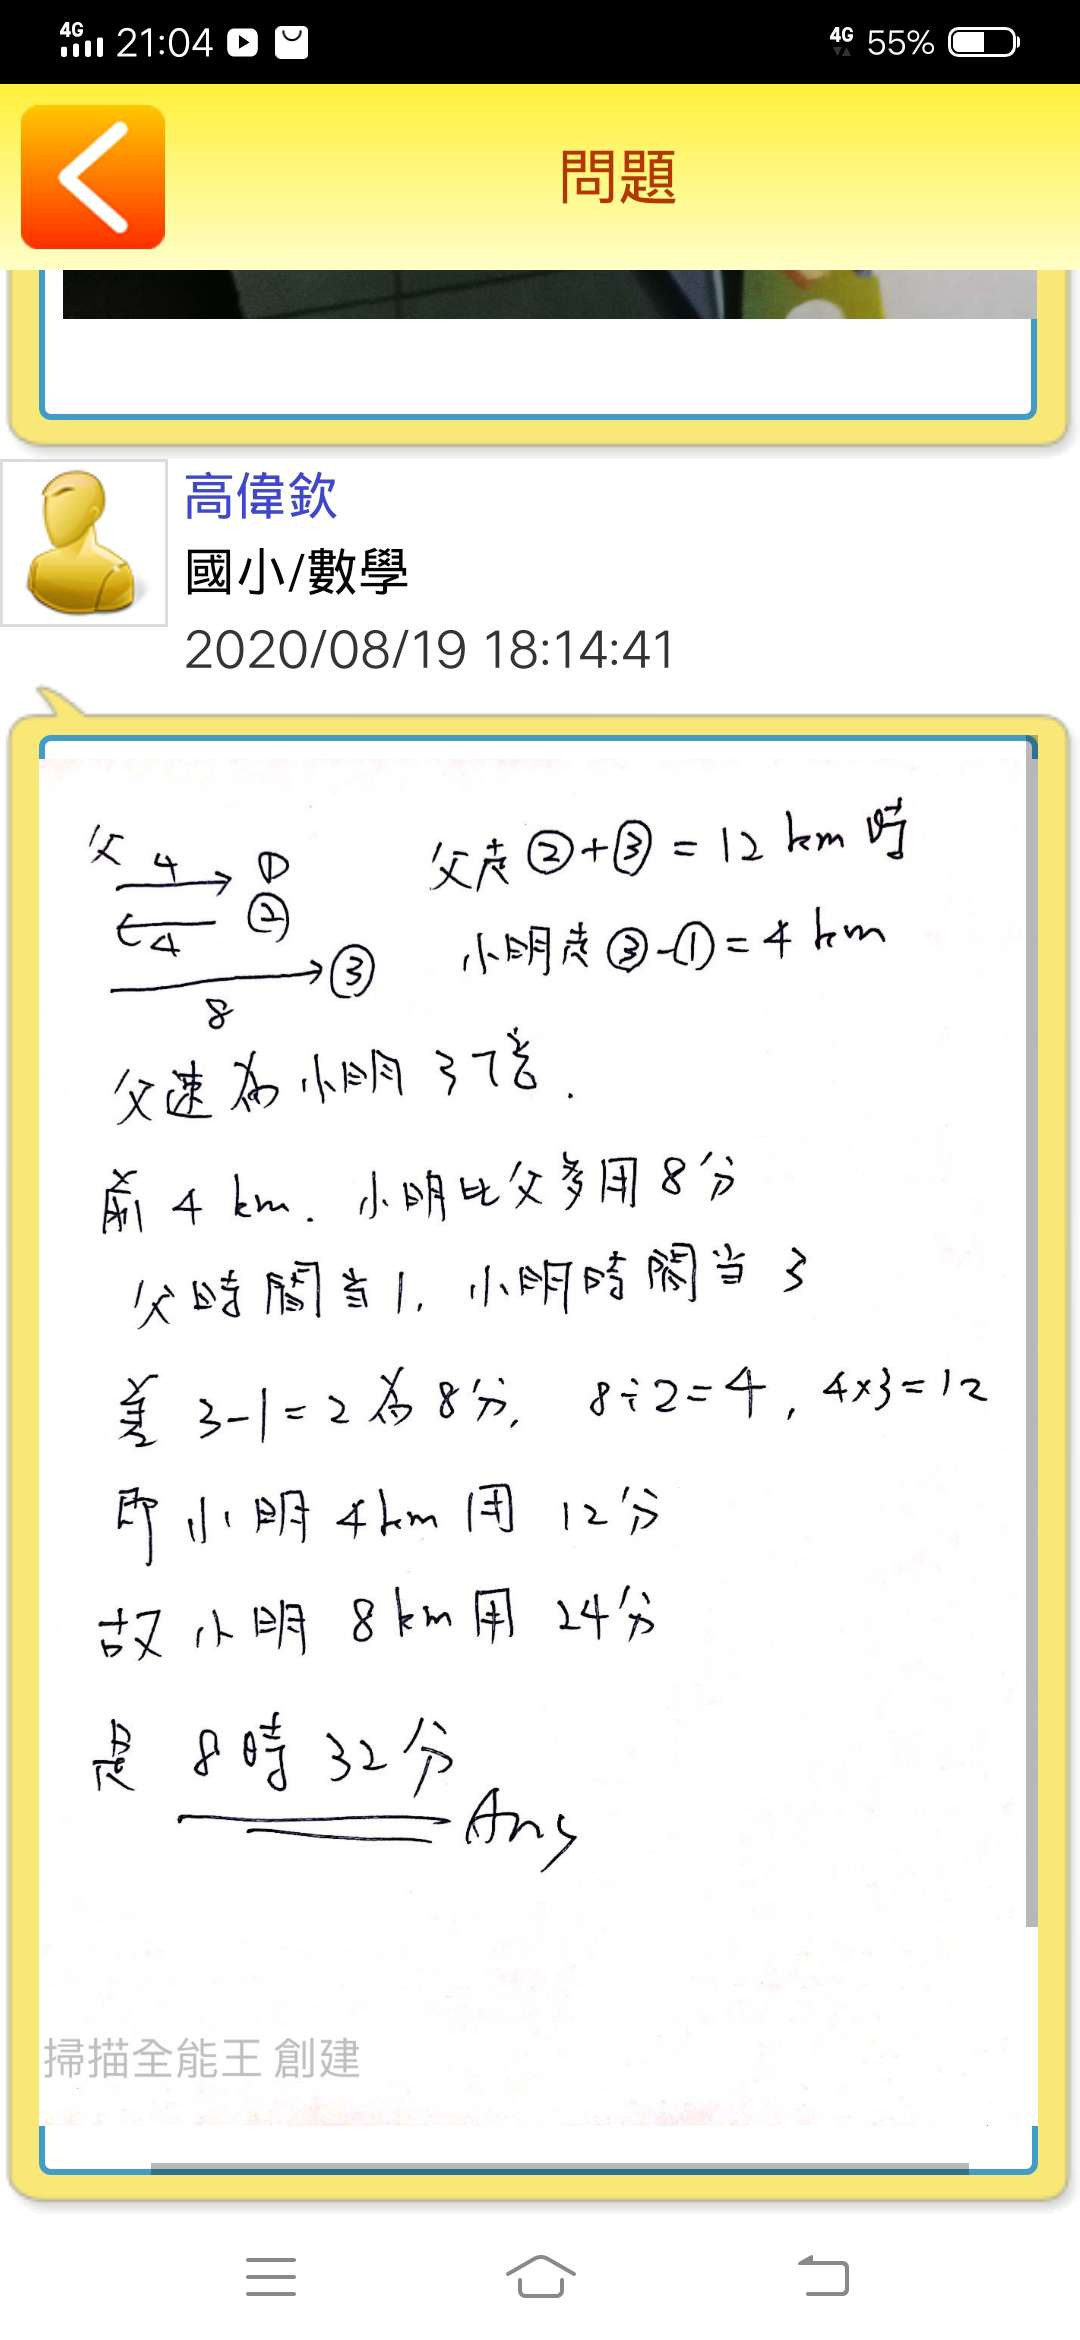 4G 21:04 4G 55%
問題
高偉欽
國小/數學
2020/08/19 18:14:41
父 4 ①
4 ②
8 ③
父走②+③=12 km 時
小明走③-①=4 km
父速為小明3倍.
前4 km. 小明比父多用8分
父時間當1, 小明時間當3
差 3-1=2為8分, 8÷2=4, 4×3=12
即小明4km用 12分
故小明 8km用 24分
是 8時32分
Ans
掃描全能王 創建